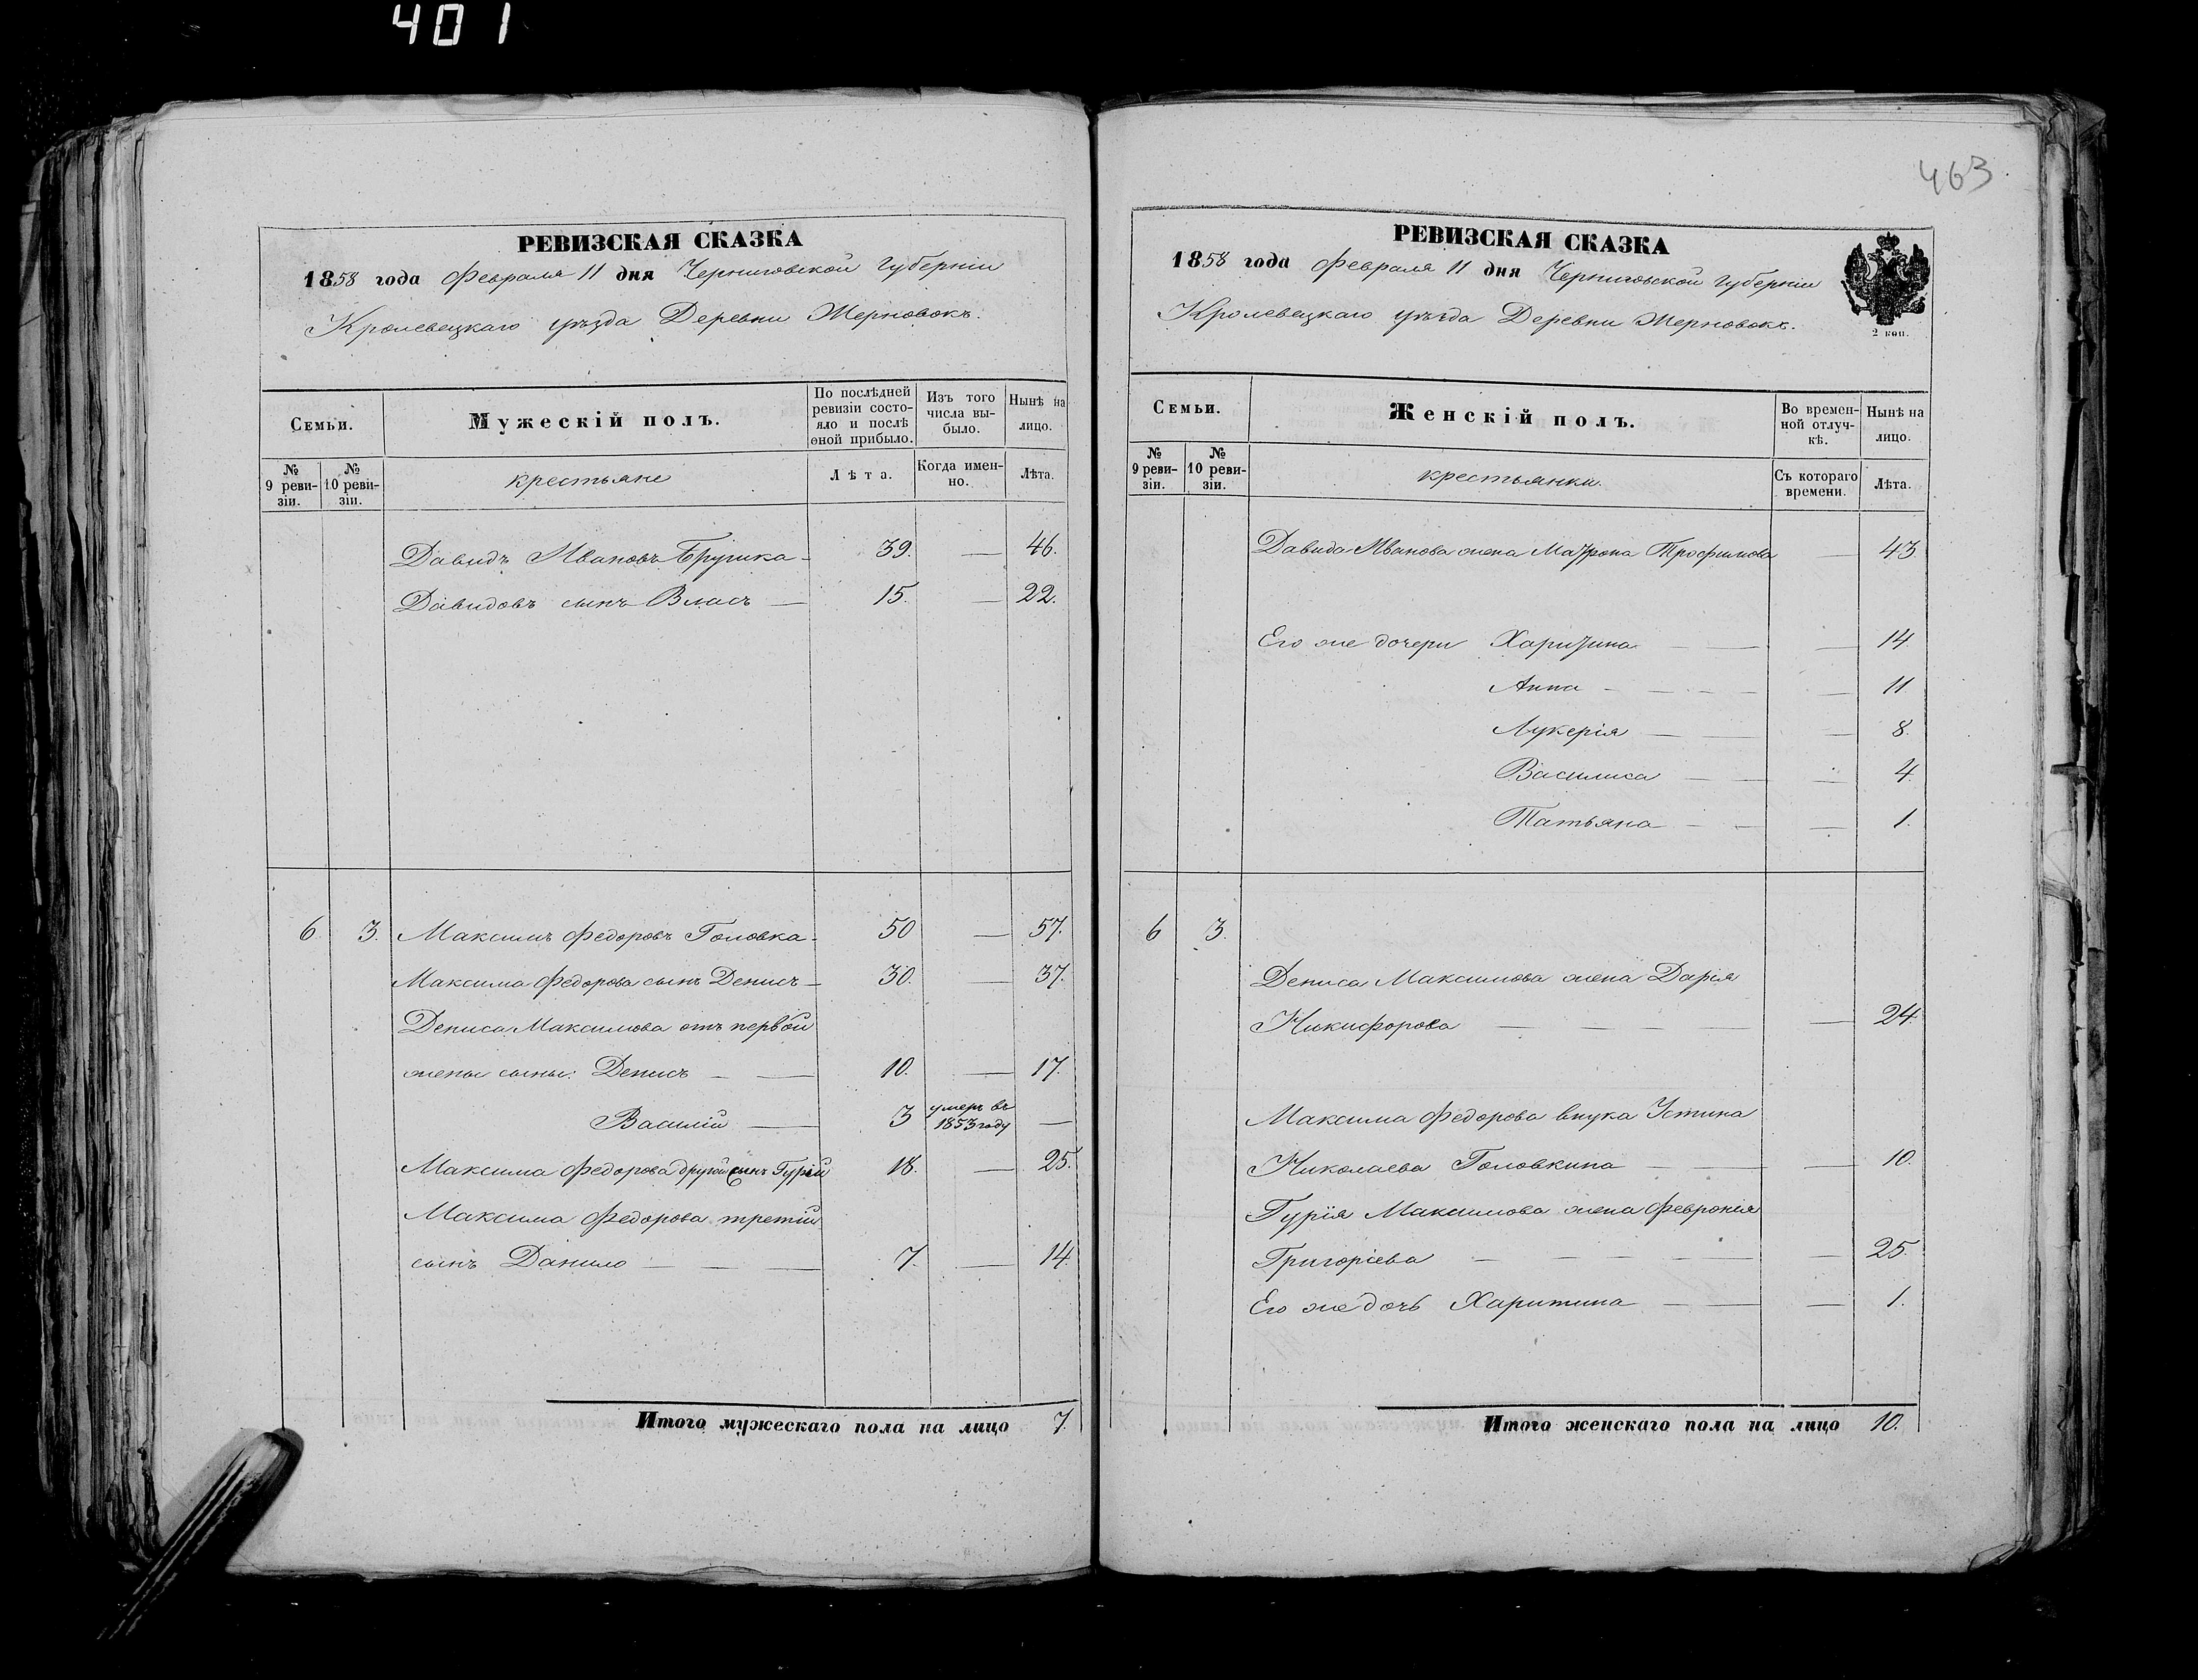 401
463
РЕВИЗСКАЯ СКАЗКА
1858 года Февраля 11 дня Черниговской Губерніи
Кролевецкаго уѣзда Деревни Жерновокъ.
Семьи.
Мужескій полъ.
По послѣдней ревизіи состояло и послѣ оной прибыло.
Изъ того числа выбыло.
Нынѣ на лицо.
№ 9 ревизіи.
№ 10 ревизіи.
крестьяне
Лѣта.
Когда именно.
Лѣта.
Давидъ Ивановъ — 39. — 46.
Давидовъ сынъ Власъ — 15. — 22.
6. 3. Максимъ Федоровъ Головка — 50 — 57.
Максима Федорова сынъ Денисъ — 30. — 37.
Дениса Максимова отъ первой
жены сыны: Денисъ — — 10. — 17.
Василій — 3 умеръ въ 1853 году —
Максима Федорова другой сынъ Гурій 18. — 25.
Максима Федорова третій
сынъ Данило — — — 7. — 14.
Итого мужескаго пола на лицо 7.
РЕВИЗСКАЯ СКАЗКА
1858 года Февраля 11 дня Черниговской Губерніи
Кролевецкаго уѣзда Деревни Жерновокъ.
2 коп.
Семьи.
Женскій полъ.
Во временной отлучкѣ.
Нынѣ на лицо.
№ 9 ревизіи.
№ 10 ревизіи.
крестьянки.
Съ котораго времени.
Лѣта.
Давида Иванова жена Матрона Трофимова — 43
Его же дочери Харитина — — — 14.
Анна — — — — 11
Лукерія — — — 8.
Василиса — — — 4.
Татьяна — — — 1.
6 3.
Дениса Максимова жена Дарія
Никифорова — — — 24.
Максима Федорова внука Устина
Николаева Головкина — — — 10.
Гурія Максимова жена Февронія
Григоріева — — — — — 25.
Его же дочь Харитина — — — 1.
Итого женскаго пола на лицо 10.